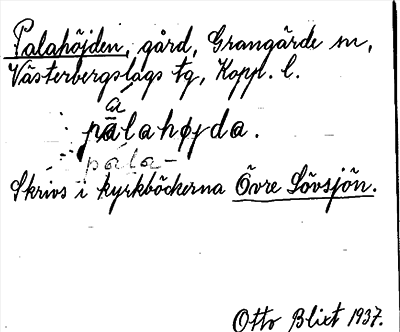 Palahöjden, gård, Grangärde sn,
Västerbergslags tg, Kopp. l.
a
pàlahøjda.
pala-
Skrivs i kyrkböckerna Övre Lövsjön.
Otto Blixt 1937.